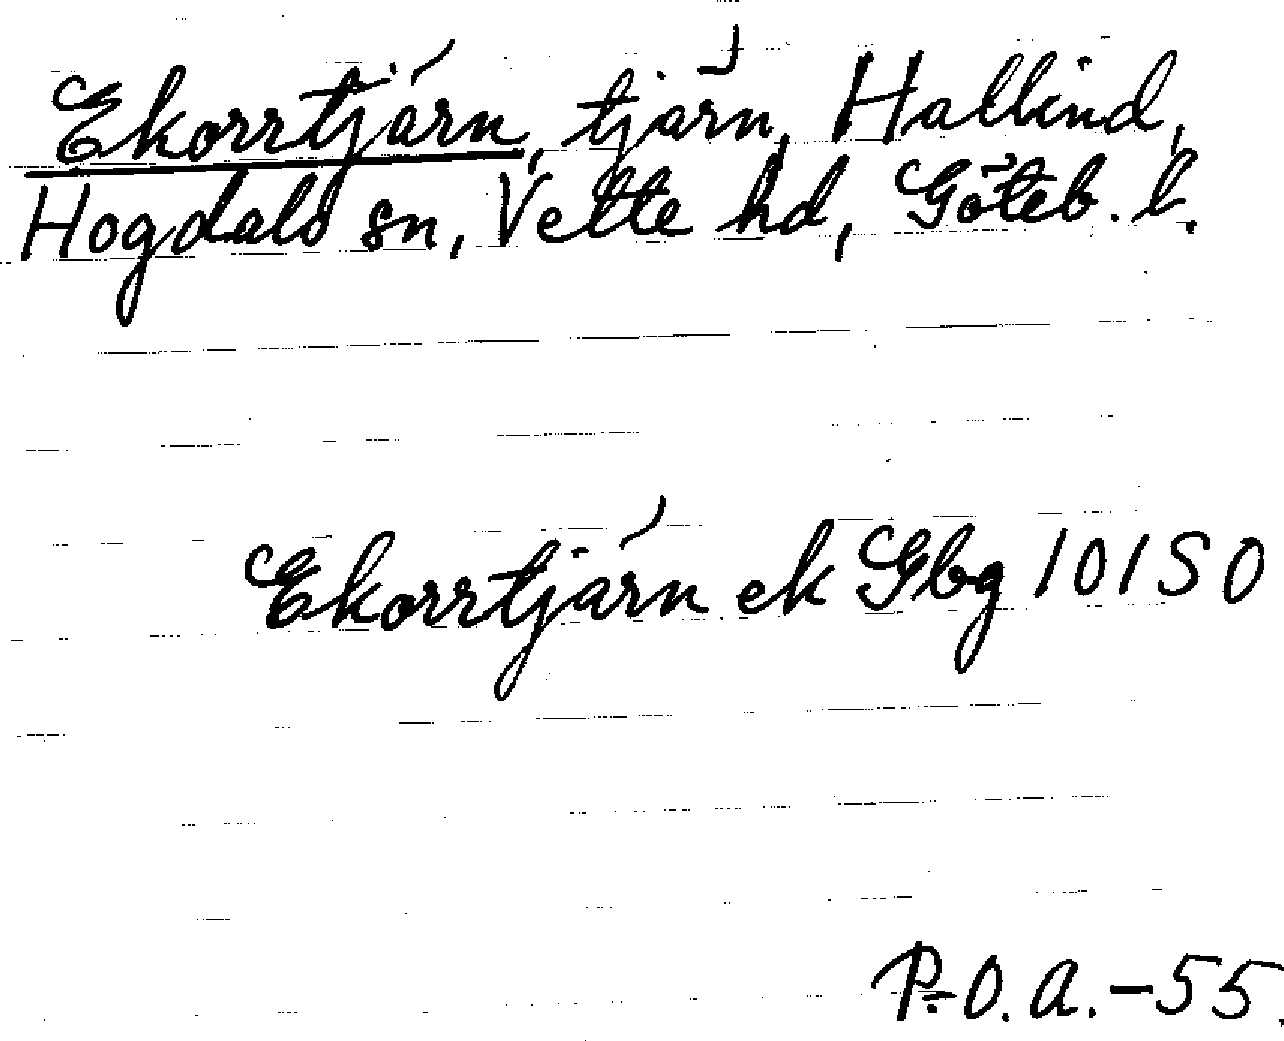 Ekorrtjärn, tjärn, Hällind,
Hogdals sn, Vette hd, Göteb. l.
Ekorrtjärn ek Gbg 10150
P.O.A.-55.